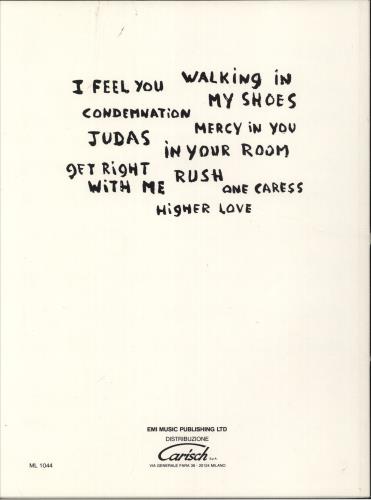 I FEEL YOU
WALKING in MY SHOES
CONDEMNATION
MERCY iN YOU
JUDAS
iN YOUR ROOM
gET RigHT WiTH ME
RUSH
ONE CARESS
HigHER LOVE
EMI MUSIC PUBLISHING LTD
DISTRIBUZIONE
Carisch S.p.A.
VIA GENERALE FARA 39 - 20124 MILANO
ML 1044